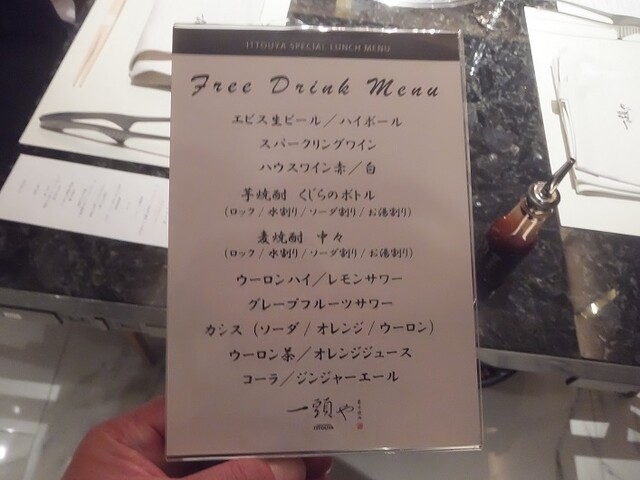 ITTOUYA SPECIAL LUNCH MENU
Free Drink Menu
エビス生ビール／ハイボール
スパークリングワイン
ハウスワイン赤／白
芋焼酎 くじらのボトル
（ロック / 水割り / ソーダ割り / お湯割り）
麦焼酎 中々
（ロック / 水割り / ソーダ割り / お湯割り）
ウーロンハイ／レモンサワー
グレープフルーツサワー
カシス（ソーダ / オレンジ / ウーロン）
ウーロン茶／オレンジジュース
コーラ／ジンジャーエール
一頭や
ITTOUYA